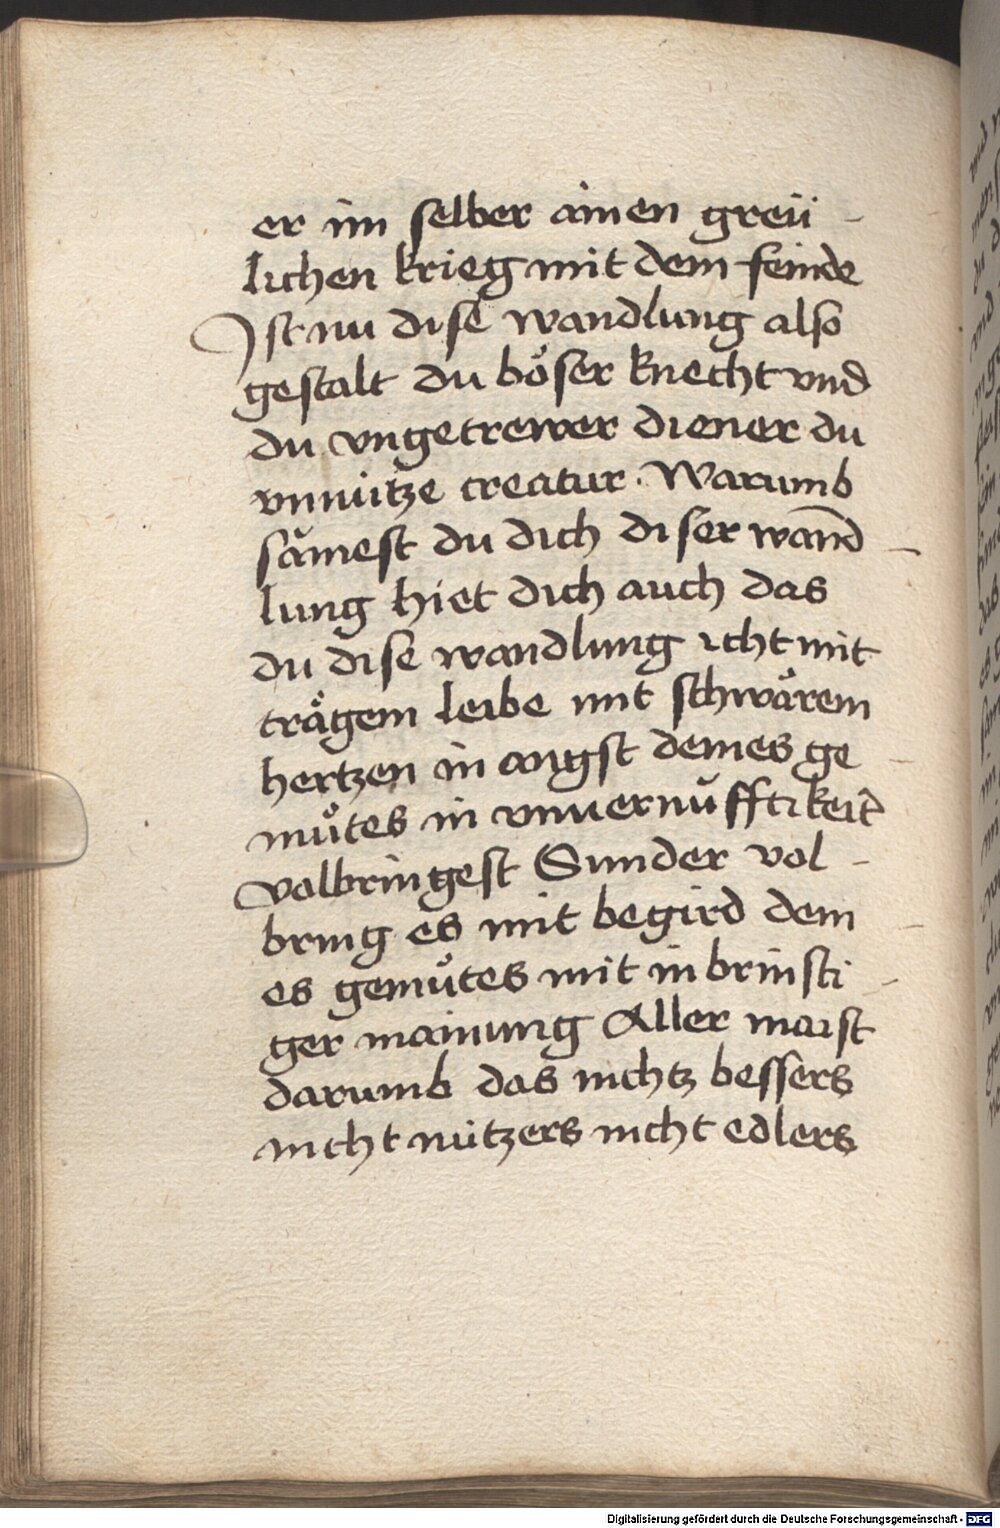 er im selber ainen greü -
lichen krieg mit dem feinde
Ist nu dise wandlung also
gestalt du böser knecht vnd
du vngetrewer diener du
vnnütze creatur · Warumb
sämest du dich diser wand -
lung hiet dich auch das
du dise wandlung icht mit
trägem leibe mit schwärem
hertzen in angst deines ge -
mutes in vnuernufftikeit
volbringest Sunder vol -
bring es mit begird dein -
es gemutes mit inbrinsti -
ger mainung Aller maist
darumb das nichtz bessers
nicht nützers nicht edlers
Digitalisierung gefördert durch die Deutsche Forschungsgemeinschaft - DFG